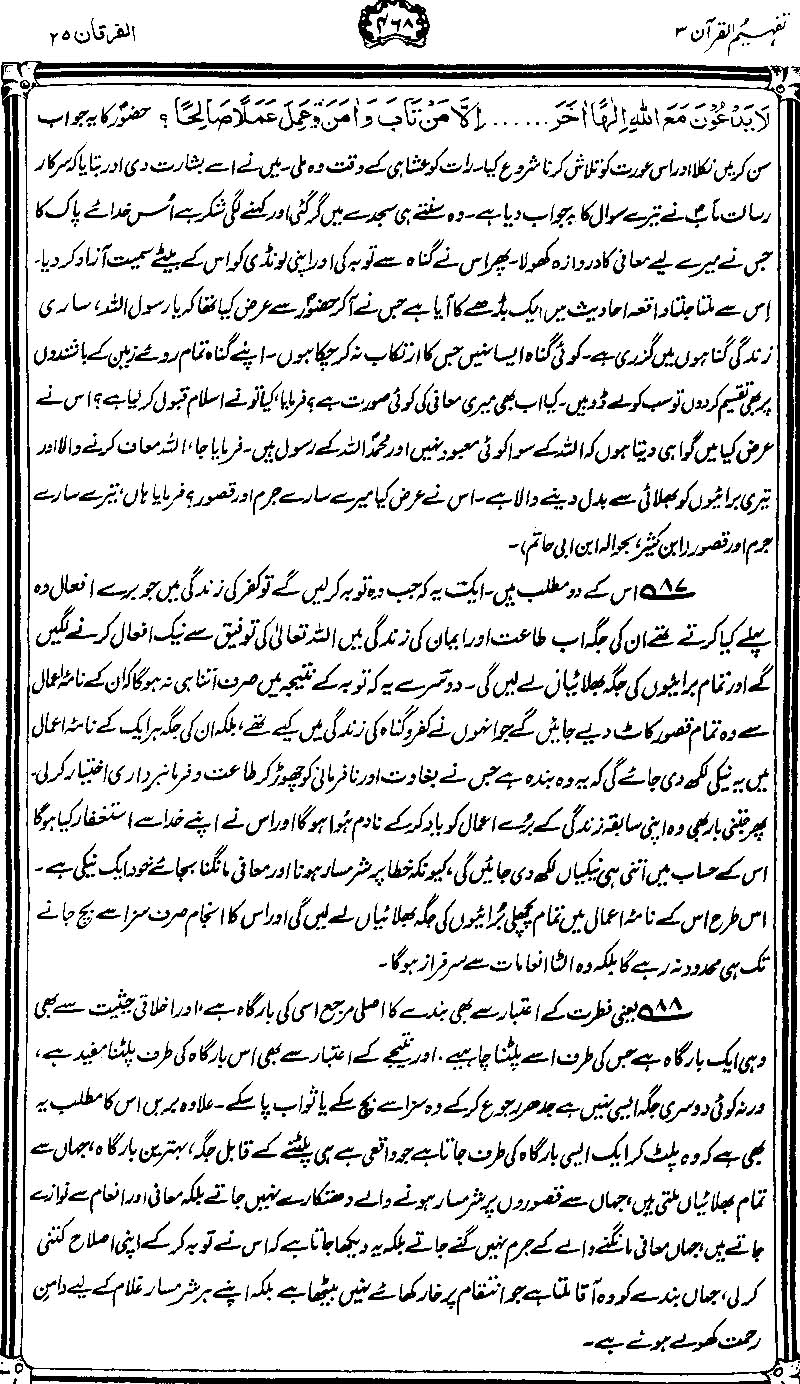 تفہیم القرآن ۳
۴۶۸
الفرقان ۲۵
لَا یَدْعُوْنَ مَعَ اللّٰہِ اِلٰھًا اٰخَرَ ...... اِلَّا مَنْ تَابَ وَاٰمَنَ وَعَمِلَ عَمَلًا صَالِحًا ؟ حضورؐ کا یہ جواب
سن کر میں نکلا اور اس عورت کو تلاش کرنا شروع کیا۔ رات کو عشا ہی کے وقت وہ ملی۔ میں نے اسے بشارت دی اور بتایا کہ سرکار
رسالت مآبؐ نے تیرے سوال کا یہ جواب دیا ہے۔ وہ سنتے ہی سجدے میں گر گئی اور کہنے لگی شکر ہے اُس خدائے پاک کا
جس نے میرے لیے معافی کا دروازہ کھولا۔ پھر اس نے گناہ سے توبہ کی اور اپنی لونڈی کو اس کے بیٹے سمیت آزاد کر دیا۔
اِس سے ملتا جلتا واقعہ احادیث میں ایک بڈھے کا آیا ہے جس نے آکر حضورؐ سے عرض کیا تھا کہ یا رسول اللہ، ساری
زندگی گناہوں میں گزری ہے۔ کوئی گناہ ایسا نہیں جس کا ارتکاب نہ کر چکا ہوں۔ اپنے گناہ تمام روئے زمین کے باشندوں
پر بھی تقسیم کر دوں تو سب کو لے ڈوبیں۔ کیا اب بھی میری معافی کی کوئی صورت ہے؟ فرمایا، کیا تو نے اسلام قبول کر لیا ہے؟ اس نے
عرض کیا میں گواہی دیتا ہوں کہ اللہ کے سوا کوئی معبود نہیں اور محمدؐ اللہ کے رسول ہیں۔ فرمایا جا، اللہ معاف کرنے والا اور
تیری برائیوں کو بھلائی سے بدل دینے والا ہے۔ اس نے عرض کیا میرے سارے جرم اور قصور؟ فرمایا ہاں، تیرے سارے
جرم اور قصور (ابن کثیر، بحوالہ ابن ابی حاتم)۔
۸۷؎ اس کے دو مطلب ہیں۔ ایک یہ کہ جب وہ توبہ کر لیں گے تو کفر کی زندگی میں جو برے افعال وہ
پہلے کیا کرتے تھے ان کی جگہ اب طاعت اور ایمان کی زندگی میں اللہ تعالیٰ کی توفیق سے نیک افعال کرنے لگیں
گے اور تمام برائیوں کی جگہ بھلائیاں لے لیں گی۔ دوسرے یہ کہ توبہ کے نتیجہ میں صرف اتنا ہی نہ ہوگا کہ ان کے نامۂ اعمال
سے وہ تمام قصور کاٹ دیے جائیں گے جو انہوں نے کفر و گناہ کی زندگی میں کیے تھے، بلکہ ان کی جگہ ہر ایک کے نامۂ اعمال
میں یہ نیکی لکھ دی جائے گی کہ یہ وہ بندہ ہے جس نے بغاوت اور نافرمانی کو چھوڑ کر طاعت و فرمانبرداری اختیار کر لی۔
پھر جتنی بار بھی وہ اپنی سابقہ زندگی کے بُرے اعمال کو یاد کر کے نادم ہُوا ہوگا اور اس نے اپنے خدا سے استغفار کیا ہوگا
اس کے حساب میں اتنی ہی نیکیاں لکھ دی جائیں گی، کیونکہ خطا پر شرمسار ہونا اور معافی مانگنا بجائے خود ایک نیکی ہے۔
اس طرح اس کے نامۂ اعمال میں تمام پچھلی بُرائیوں کی جگہ بھلائیاں لے لیں گی اور اس کا انجام صرف سزا سے بچ جانے
تک ہی محدود نہ رہے گا بلکہ وہ الٹا انعامات سے سرفراز ہوگا۔
۸۸؎ یعنی فطرت کے اعتبار سے بھی بندے کا اصلی مرجع اسی کی بارگاہ ہے، اور اخلاقی حیثیت سے بھی
وہی ایک بارگاہ ہے جس کی طرف اسے پلٹنا چاہیے، اور نتیجے کے اعتبار سے بھی اس بارگاہ کی طرف پلٹنا مفید ہے،
ورنہ کوئی دوسری جگہ ایسی نہیں ہے جدھر رجوع کر کے وہ سزا سے بچ سکے یا ثواب پا سکے۔ علاوہ بریں اس کا مطلب یہ
بھی ہے کہ وہ پلٹ کر ایک ایسی بارگاہ کی طرف جاتا ہے جو واقعی ہے ہی پلٹنے کے قابل جگہ، بہترین بارگاہ، جہاں سے
تمام بھلائیاں ملتی ہیں، جہاں سے قصوروں پر شرمسار ہونے والے دھتکارے نہیں جاتے بلکہ معافی اور انعام سے نوازے
جاتے ہیں، جہاں معافی مانگنے والے کے جرم نہیں گنے جاتے بلکہ یہ دیکھا جاتا ہے کہ اس نے توبہ کر کے اپنی اصلاح کتنی
کر لی، جہاں بندے کو وہ آقا ملتا ہے جو انتقام پر خار کھائے نہیں بیٹھا ہے بلکہ اپنے ہر شرمسار غلام کے لیے دامنِ
رحمت کھولے ہوئے ہے۔